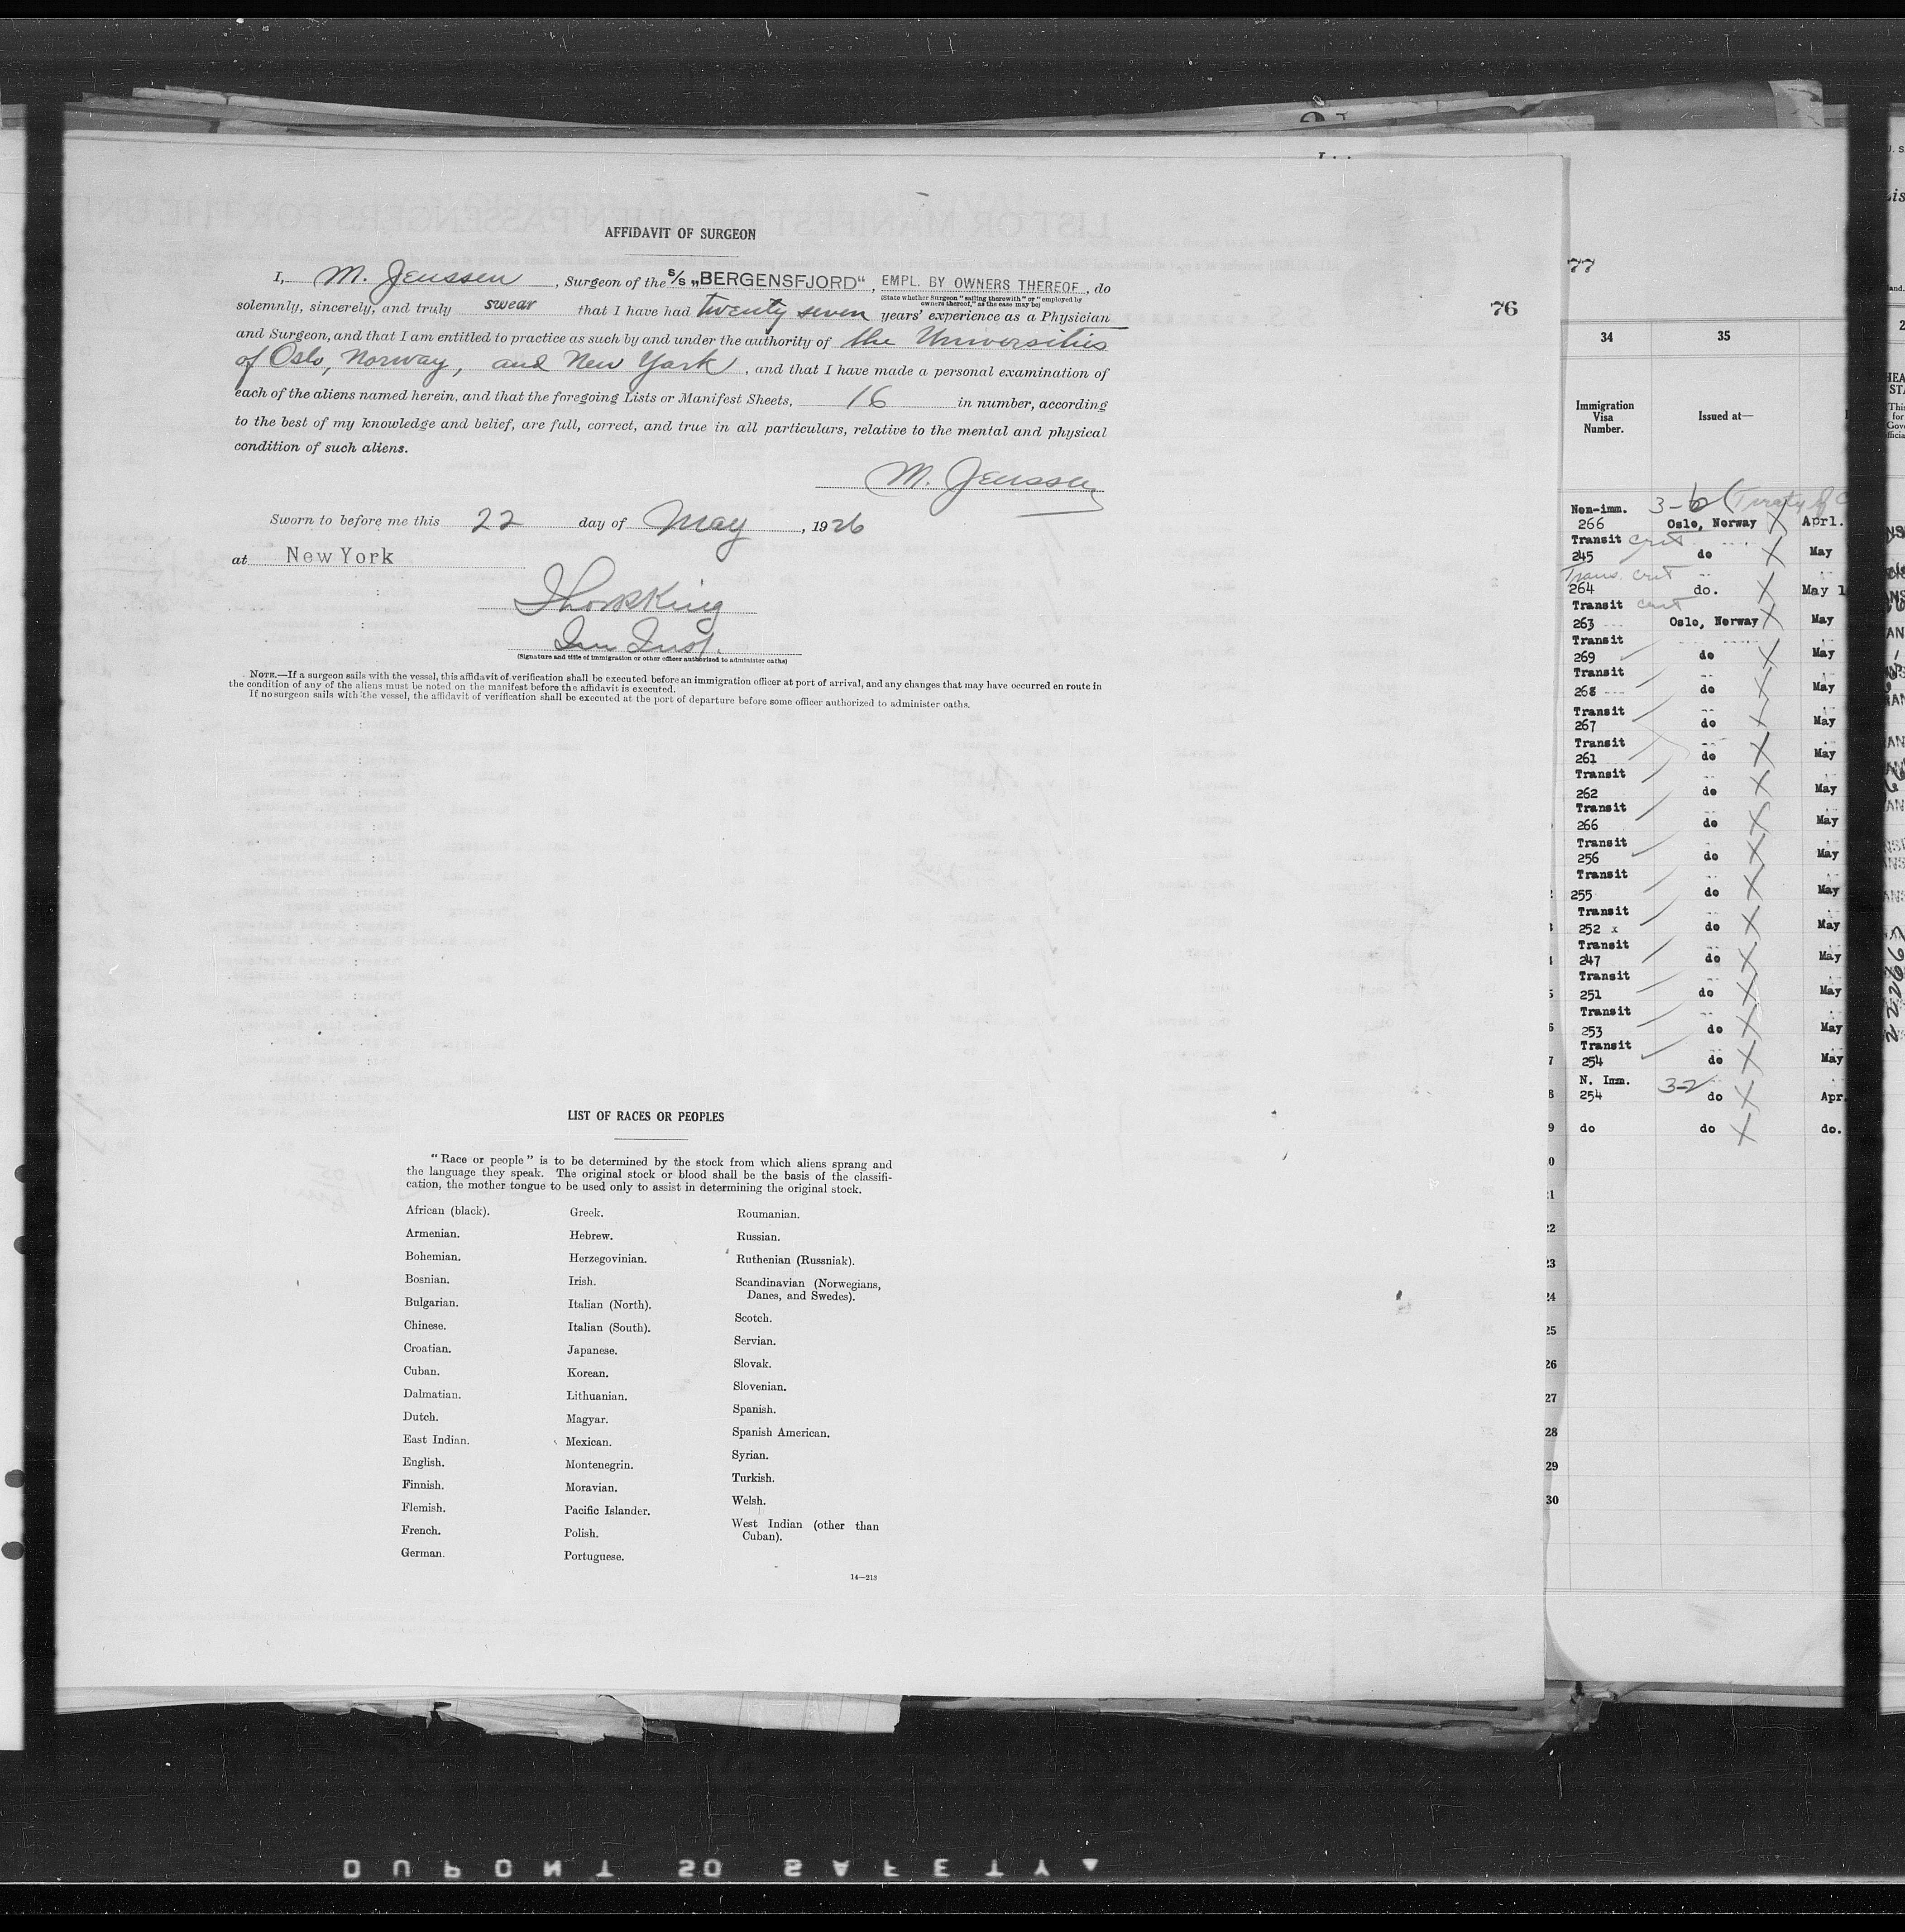 AFFIDAVIT OF SURGEON
I, M. Jenssen, Surgeon of the S/S „BERGENSFJORD“, EMPL. BY OWNERS THEREOF, do
(State whether Surgeon “sailing therewith” or “employed by
owners thereof,” as the case may be)
solemnly, sincerely, and truly swear that I have had twenty seven years’ experience as a Physician
and Surgeon, and that I am entitled to practice as such by and under the authority of the Universities
of Oslo, Norway, and New York, and that I have made a personal examination of
each of the aliens named herein, and that the foregoing Lists or Manifest Sheets, 16 in number, according
to the best of my knowledge and belief, are full, correct, and true in all particulars, relative to the mental and physical
condition of such aliens.
M. Jenssen
Sworn to before me this 22 day of May, 1926
at New York
Imm Insp.
(Signature and title of immigration or other officer authorized to administer oaths)
NOTE.—If a surgeon sails with the vessel, this affidavit of verification shall be executed before an immigration officer at port of arrival, and any changes that may have occurred en route in
the condition of any of the aliens must be noted on the manifest before the affidavit is executed.
If no surgeon sails with the vessel, the affidavit of verification shall be executed at the port of departure before some officer authorized to administer oaths.
LIST OF RACES OR PEOPLES
“Race or people” is to be determined by the stock from which aliens sprang and
the language they speak. The original stock or blood shall be the basis of the classifi-
cation, the mother tongue to be used only to assist in determining the original stock.
African (black).
Armenian.
Bohemian.
Bosnian.
Bulgarian.
Chinese.
Croatian.
Cuban.
Dalmatian.
Dutch.
East Indian.
English.
Finnish.
Flemish.
French.
German.
Greek.
Hebrew.
Herzegovinian.
Irish.
Italian (North).
Italian (South).
Japanese.
Korean.
Lithuanian.
Magyar.
Mexican.
Montenegrin.
Moravian.
Pacific Islander.
Polish.
Portuguese.
Roumanian.
Russian.
Ruthenian (Russniak).
Scandinavian (Norwegians,
Danes, and Swedes).
Scotch.
Servian.
Slovak.
Slovenian.
Spanish.
Spanish American.
Syrian.
Turkish.
Welsh.
West Indian (other than
Cuban).
14—213
76
77
34 35
Immigration
Visa
Number.
Issued at—
Non-imm. 3-b
266 Oslo, Norway X Apr1.
Transit cert
245 do X May
Trans. cert
264 do. X May 1
Transit cert
263 Oslo, Norway X May
Transit
269 do X May
Transit
268 do X May
Transit
267 do X May
Transit
261 do X May
Transit
262 do X May
Transit
266 do X May
Transit
256 do X May
Transit
255 do X May
Transit
252 x do X May
Transit
247 do X May
Transit
251 do X May
Transit
253 do X May
Transit
254 do X May
N. Imm. 3-2
254 do X Apr.
do do X do.
22
23
24
25
26
27
28
29
30
DUPONT SAFETY